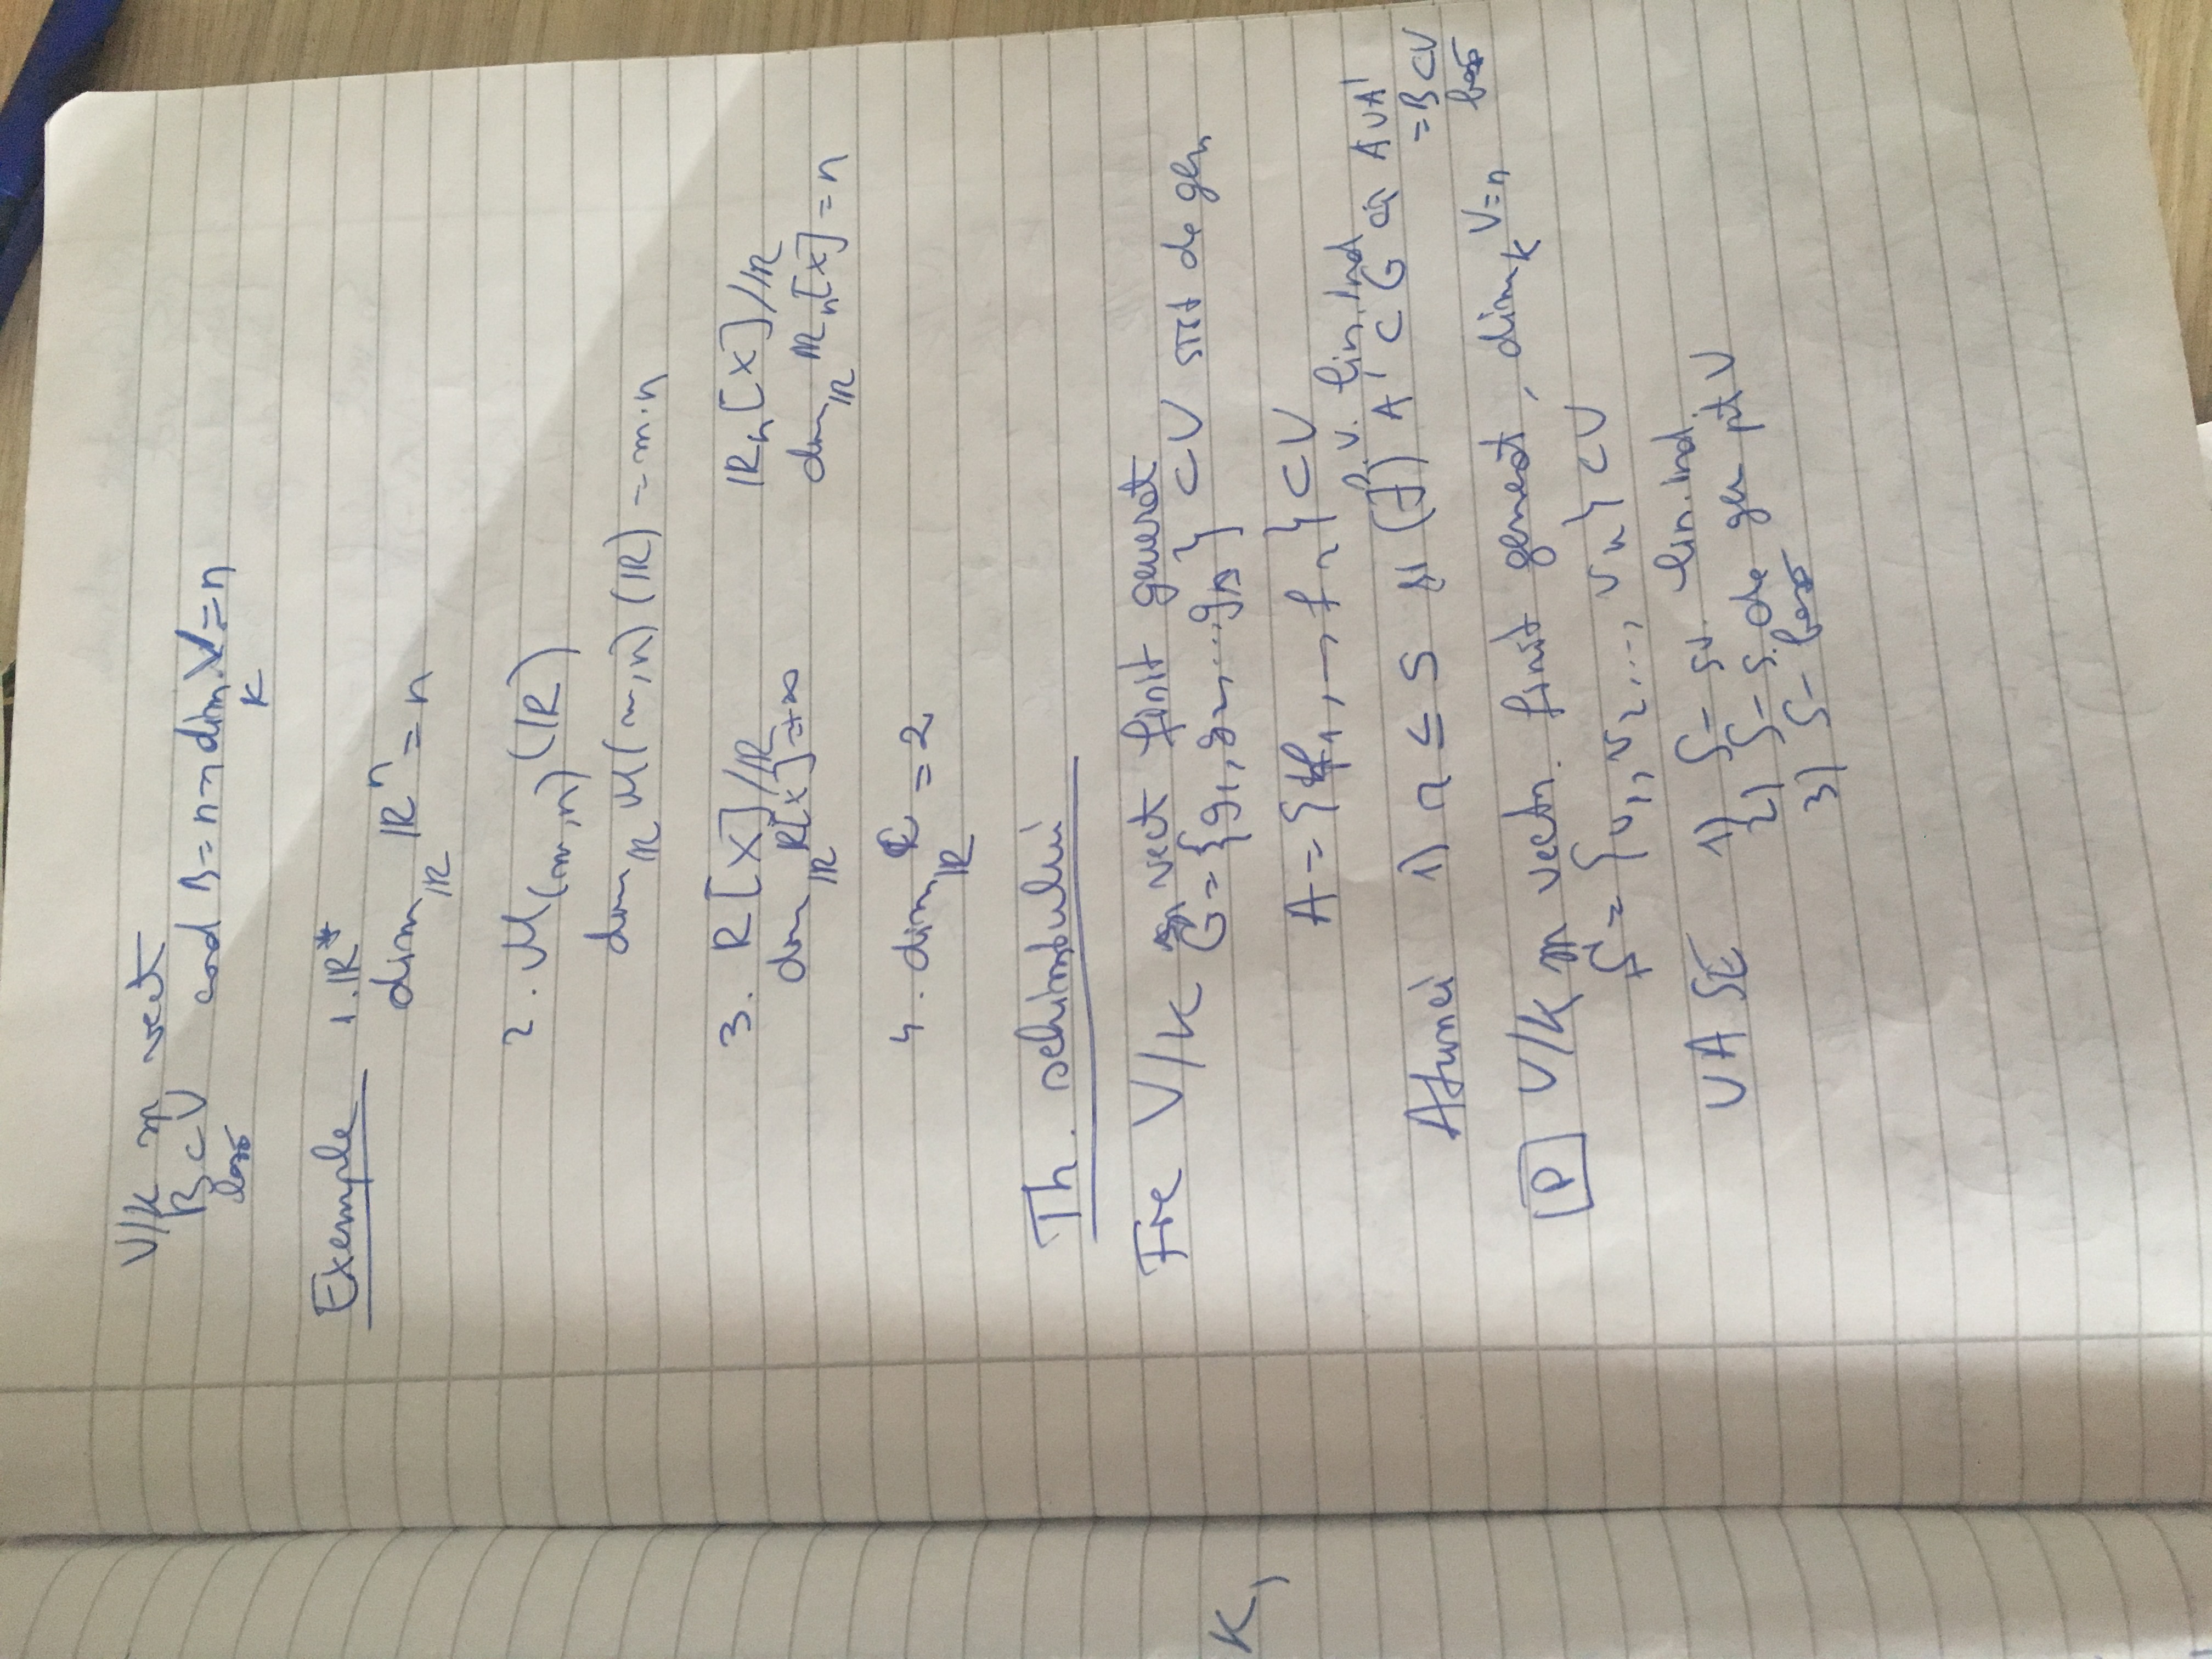 V/K sp vect
B ⊂ V card B = n → dim_K V = n
bază
Exemple 1. ℝ*
dim_ℝ ℝⁿ = n
2. M(m,n)(ℝ)
dim_ℝ M(m,n)(ℝ) = m·n
3. R[X]/ℝ ℝn[X]/ℝ
dim_ℝ R[X] = +∞ dim_ℝ ℝn[X] = n
4. dim_ℝ ℂ = 2
Th. schimbului
Fie V/K sp vect finit generat
G = {g₁, g₂, ... gs} ⊂ V sist de gen
K,
A = {f₁, ..., fr} ⊂ V
s.v. lin. ind
Atunci 1) r ≤ s și (∃) A' ⊂ G aî A∪A'
= B ⊂ V
bază
P V/K sp vect. finit generat, dim_K V = n
S = {v₁, v₂, ..., vn} ⊂ V
UASE 1) S - sv. lin. ind.
2) S - s. de gen pt V
3) S - bază